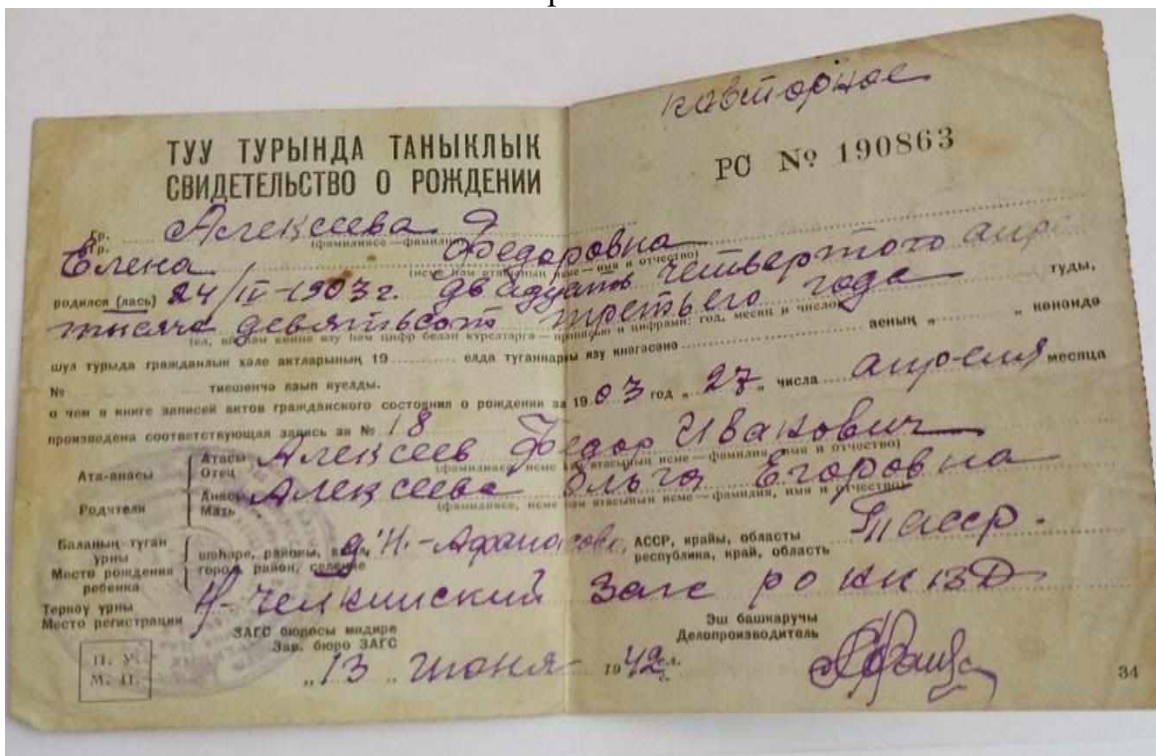 повторное
ТУУ ТУРЫНДА ТАНЫКЛЫК
СВИДЕТЕЛЬСТВО О РОЖДЕНИИ
РС № 190863
Гр.
Гр. Алексеева
(фамилиясе—фамилия)
Елена Федоровна
(исеме һәм атасының исеме—имя и отчество)
родился (лась) 24/IV-1903 г. двадцать четвертого апр туды,
тысяча девятьсот третьего года
(ел, ай һәм көнне язу һәм цифр белән күрсәтергә—прописью и цифрами: год, месяц и число)
шул турыда гражданлык хәле актларының 19 елда туганнарны язу кнәгәсенә аеның „ “ көнөндә
№ тиешенчә язып куелды.
о чем в книге записей актов гражданского состояния о рождении за 1903 год „ 27 „ числа апреля месяца
произведена соответствующая запись за № 18
Ата-анасы
Родители
Атасы
Отец Алексеев Федор Иванович
(фамилиясе, исеме һәм атасының исеме—фамилия, имя и отчество)
Анасы
Мать Алексеева Ольга Егоровна
(фамилиясе, исеме һәм атасының исеме—фамилия, имя и отчество)
Баланың туган урны
Место рождения ребенка
шәһәре, районы,
город, район, селение д. Н.-Афанасово,
АССР, крайы, области
республика, край, область ТАССР.
Теркәү урны
Место регистрации Н-Челнинский Загс РО НКВД
ЗАГС бюросы мөдире
Зав. бюро ЗАГС
Эш башкаручы
Делопроизводитель
П. У.
М. П.
„ 13 „ июня 1942 г.
34